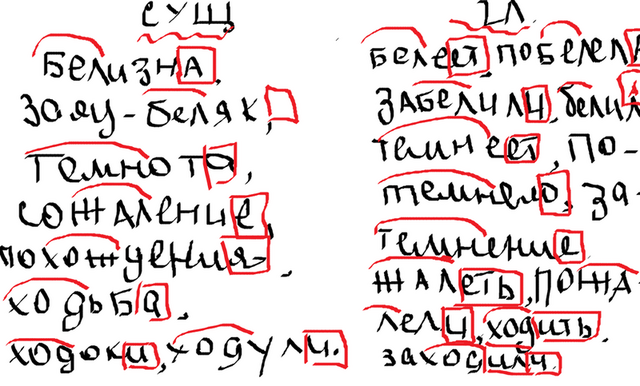 сущ.
белизна,
заяц-беляк,
темнота,
сожаление,
похождения.
ходьба,
ходоки, ходули.
гл.
белеет, побелела
забелили, белил
темнеет, по-
темнело, за-
темнение
жалеть, пожа-
лели, ходить.
заходили.